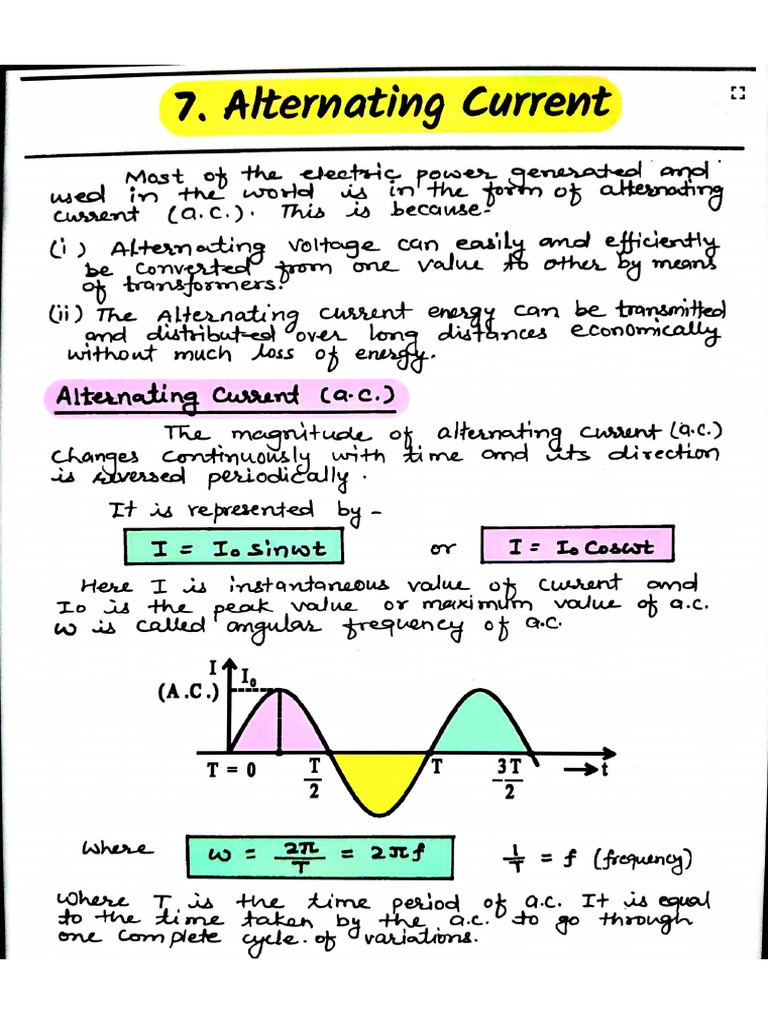 7. Alternating Current
Most of the electric power generated and
used in the world is in the form of alternating
current (a.c.). This is because-
(i) Alternating Voltage can easily and efficiently
be converted from one value to other by means
of transformers.
(ii) The Alternating current energy can be transmitted
and distributed over long distances economically
without much loss of energy.
Alternating Current (a.c.)
The magnitude of alternating current (a.c.)
changes continuously with time and its direction
is reversed periodically.
It is represented by -
I = I₀ sinωt or I = I₀ Cosωt
Here I is instantaneous value of current and
I₀ is the peak value or maximum value of a.c.
ω is called angular frequency of a.c.
I I₀
(A.C.)
T = 0 T/2 T 3T/2 →t
Where ω = 2π/T = 2πf 1/T = f (frequency)
Where T is the time period of a.c. It is equal
to the time taken by the a.c. to go through
one complete cycle of variations.